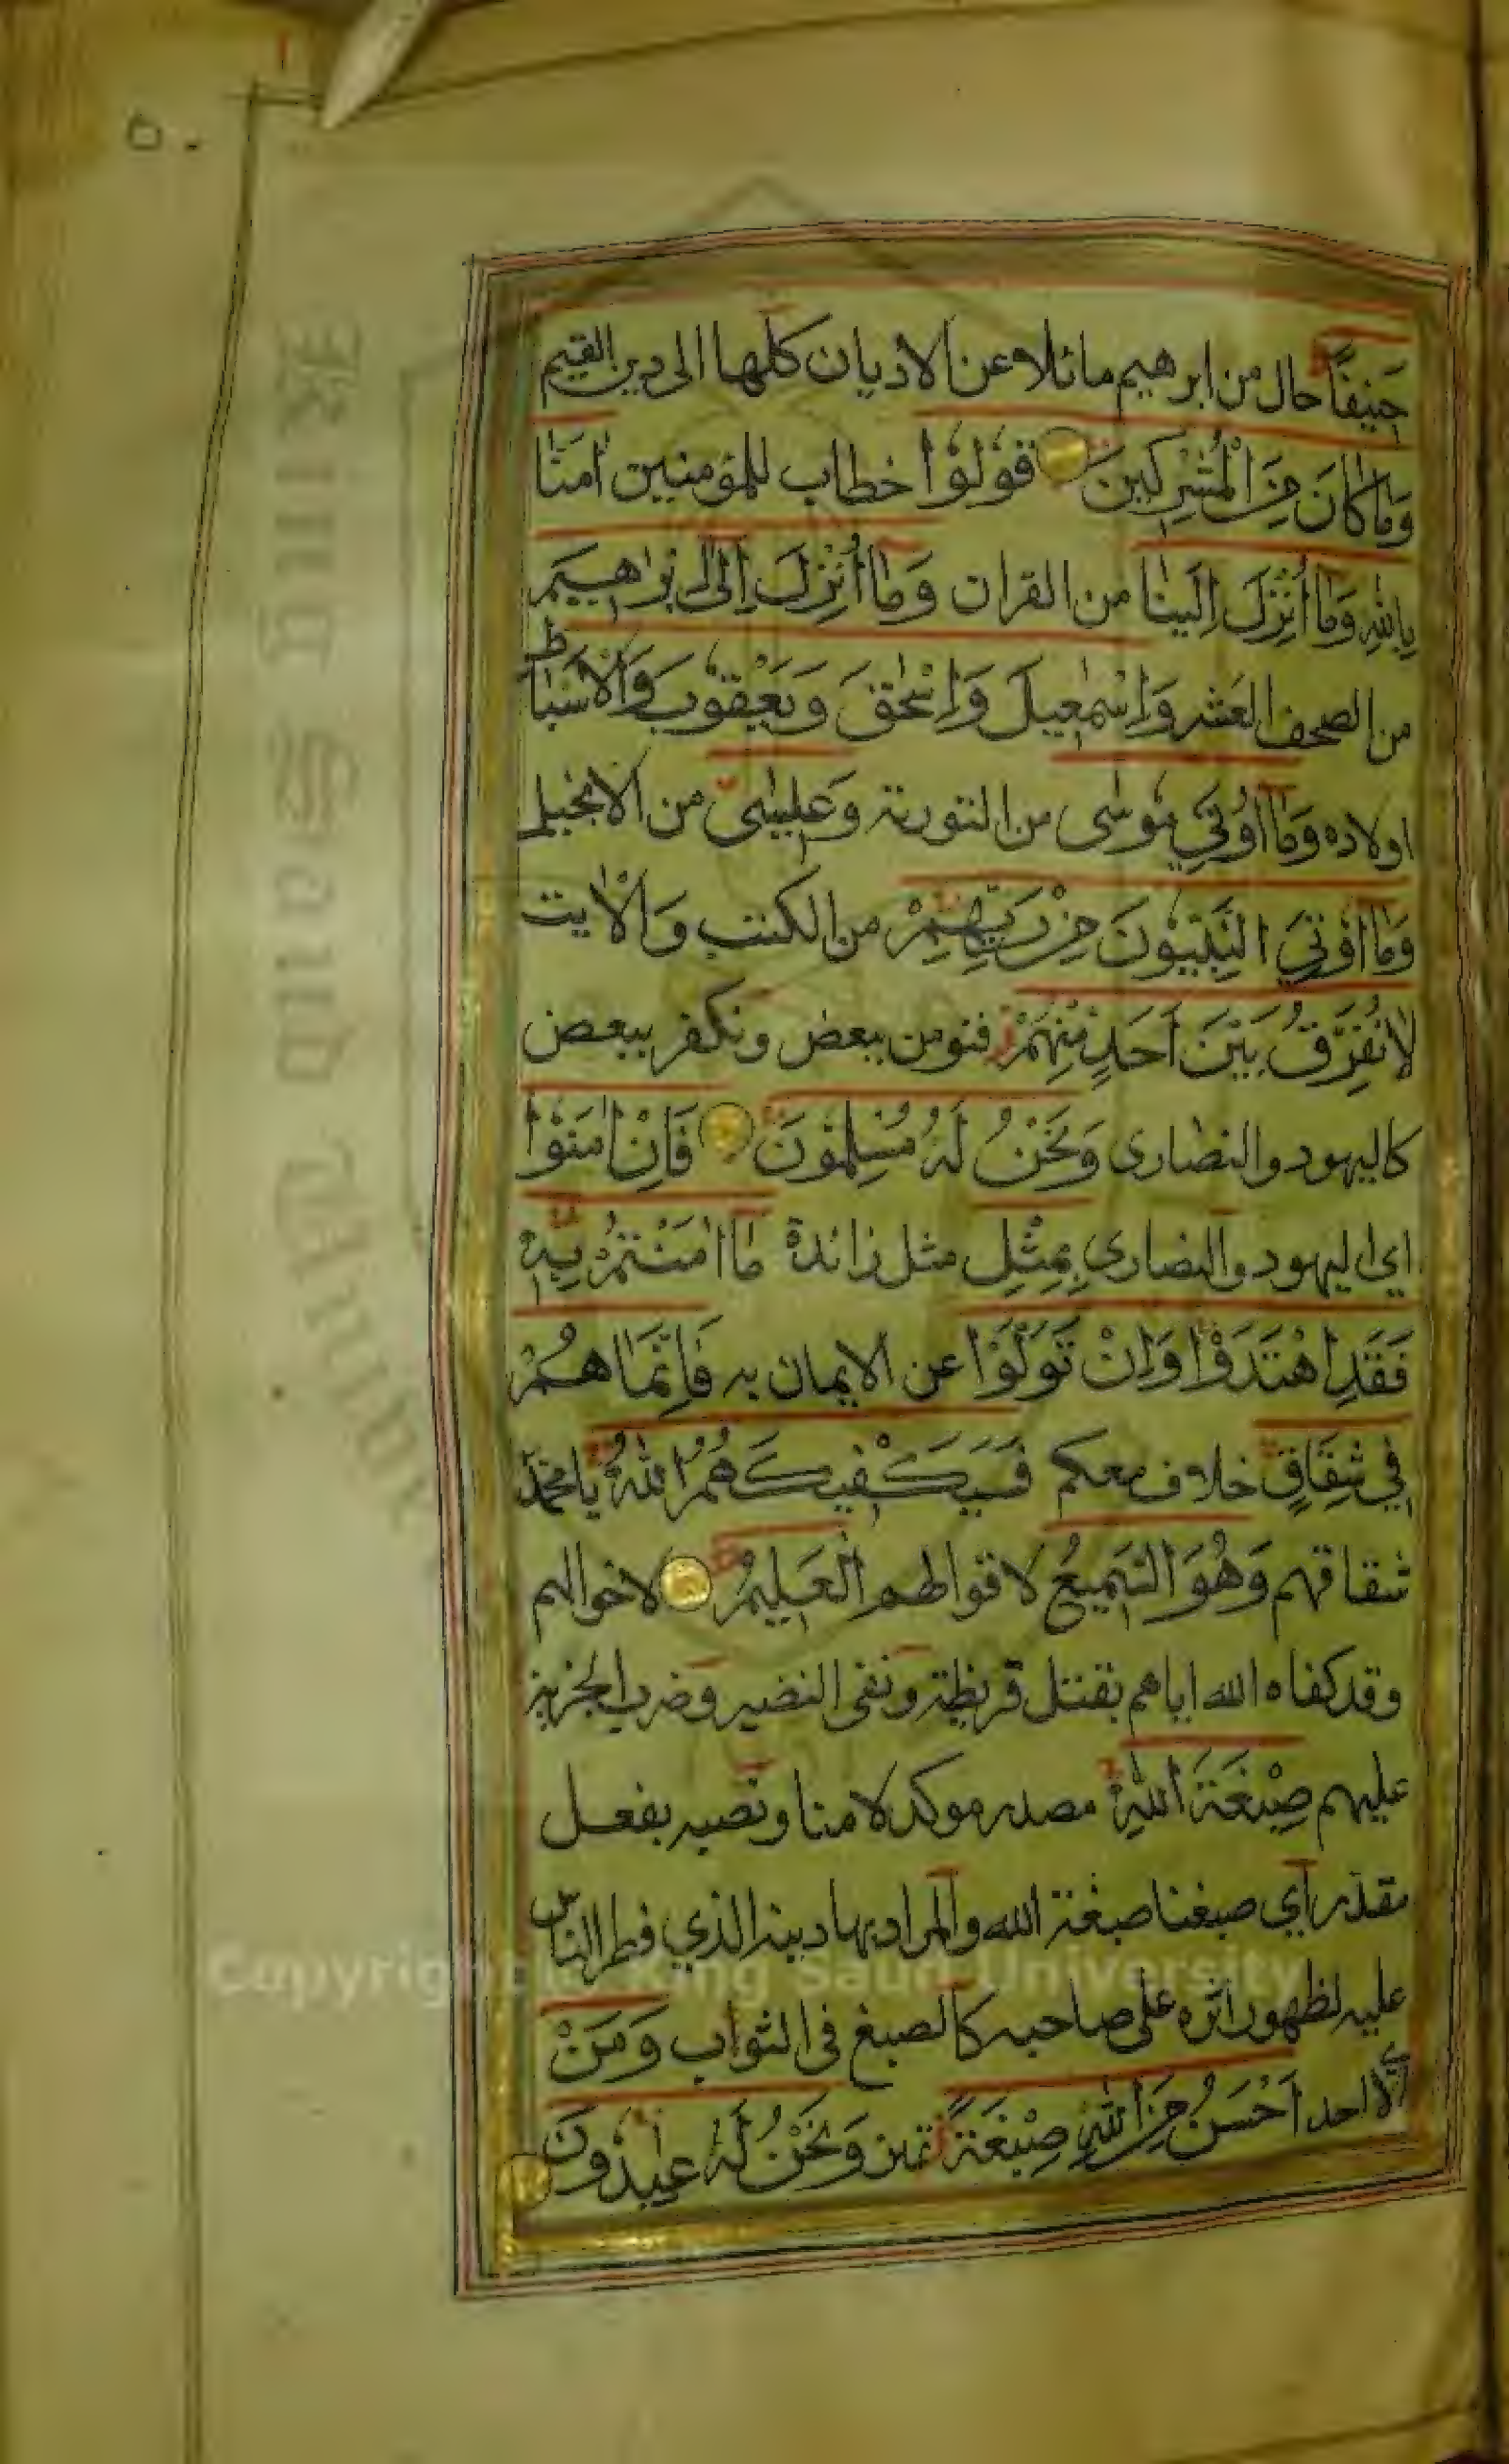 ٥٠
حَنِيفًا حال من ابرهيم مائلا عن الاديان كلها الى دين القيم
وَمَا كَانَ مِنَ الْمُشْرِكِينَ قُولُوا خطاب للمؤمنين اٰمَنَّا
بِاللّٰهِ وَمَا اُنْزِلَ اِلَيْنَا من القران وَمَا اُنْزِلَ اِلٰى اِبْرٰاهِيمَ
من الصحف العشر وَاِسْمٰعِيلَ وَاِسْحٰقَ وَيَعْقُوبَ وَالْاَسْبَاطِ
اولاده وَمَا اُوتِيَ مُوسٰى من التورية وَعِيسٰى من الانجيل
وَمَا اُوتِيَ النَّبِيُّونَ مِنْ رَبِّهِمْ من الكتب وَالْاٰيت
لَا نُفَرِّقُ بَيْنَ اَحَدٍ مِنْهُمْ فنومن ببعض ونكفر ببعض
كاليهود والنصارى وَنَحْنُ لَهُ مُسْلِمُونَ فَاِنْ اٰمَنُوا
اي اليهود والنصاري بِمِثْلِ مثل زائدة مَا اٰمَنْتُمْ بِهِ
فَقَدِ اهْتَدَوْا وَاِنْ تَوَلَّوْا عن الايمان به فَاِنَّمَا هُمْ
فِي شِقَاقٍ خلاف معكم فَسَيَكْفِيكَهُمُ اللّٰهُ يا محمد
شقاقهم وَهُوَ السَّمِيعُ لاقوالهم الْعَلِيمُ لاحوالهم
وقد كفاه الله اياهم بقتل قريظة ونفى النضير وضرب الجزية
عليهم صِبْغَةَ اللّٰهِ مصدر موكد لامنا ونصبه بفعل
مقدر اي صبغنا صبغة الله والمراد بها دينه الذي فطر الناس
عليه لظهور اثره على صاحبه كالصبغ فى الثواب وَمَنْ
اي لا احد اَحْسَنُ مِنَ اللّٰهِ صِبْغَةً تمين وَنَحْنُ لَهُ عَابِدُونَ
King Saud University
Copyright © King Saud University